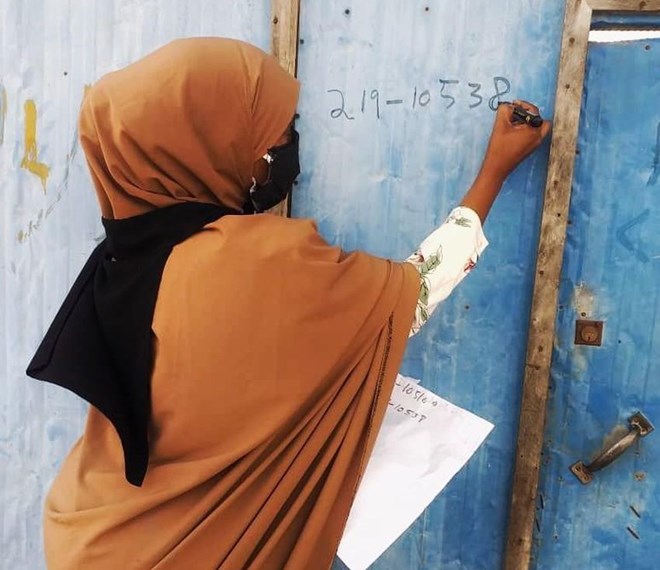 219-10538
-10538